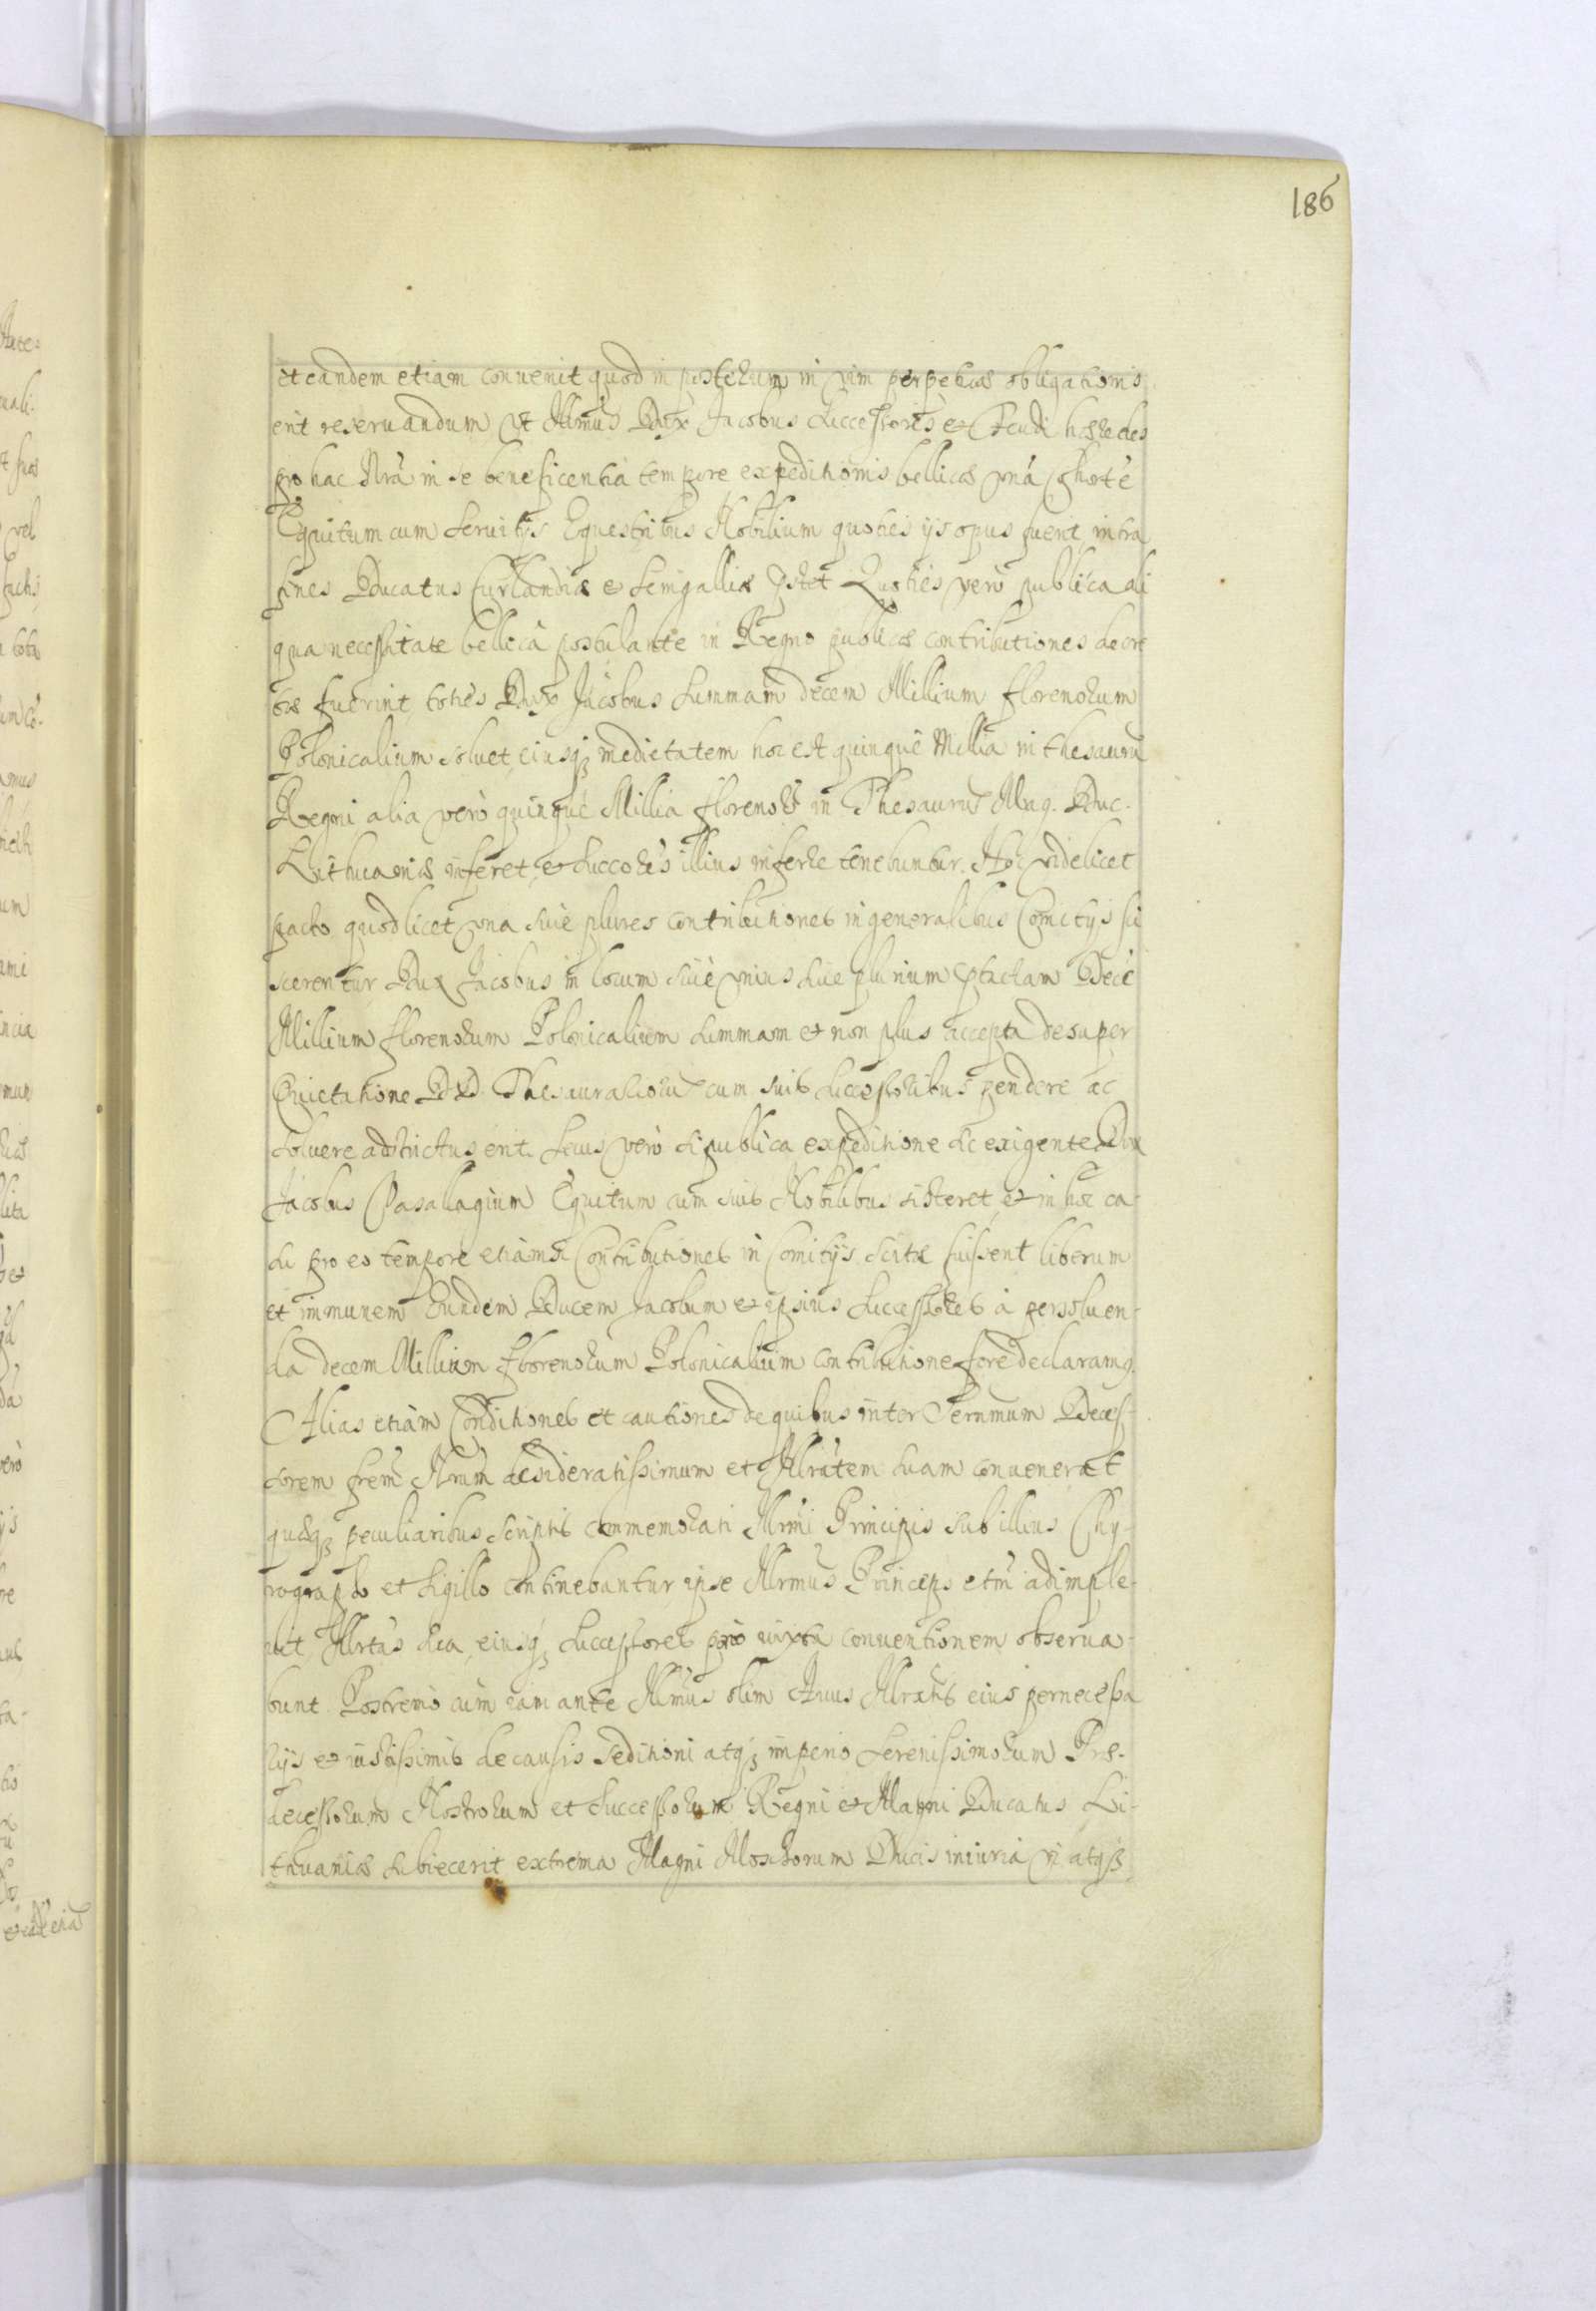 186
et eandem etiam conuenit quod in posterum in vim perpetuae obligationis
erit reseruandum vt Illmus Dux Jacobus Successores et Feudi haeredes
pro hac Nrâ in se beneficentia tempore expeditionis bellicae vnâ Cohorte
Equitum cum seruitijs Equestribus Nobilium quoties ijs opus fuerit intra
fines Ducatus Curlandiae et Semigalliae Quoties verò publica ali
qua necessitate bellicâ postulante in Regno publicae contributiones decre
tae fuerint, toties Dux Jacobus Summam decem Millium florenorum
Polonicalium soluet, eiusq medietatem hoc est quinque Millia in thesauru
Regni alia verò quinque Millia florenor in Thesauru Mag. Duc.
Lithuaniae inferet, et Succores illius inferre tenebuntur. Hoc videlicet
pacto quod licet vna siue plures contributiones in generalibus Comitijs su
scerentur Dux Jacobus in locum siue vnius siue plurium Decè
Millium florenorum Polonicalium summam et non plus accepta desuper
Quietatione DD. Thesaurariorum cum suis successoribus pendere ac
soluere adstrictus erit. Secus verò si publica expeditione sic exigente Dux
Jacobus Vasallagium Equitum cum suis Nobilibus sisteret, et in hoc ca-
su pro eo tempore etiamsi Contributiones in Comitijs scitae fuissent liberum
et immunem Eundem Ducem Jacobum et ipsius Successores à persoluen-
da decem Millium florenorum Polonicalium contributione fore declaramq.
Alias etiam Conditiones et cautiones de quibus inter Sernmum Deces-
sorem frem Nrum desideratissimum et Illritem suam conuenerat
quaeq peculiaribus scriptis commemorati Illmi Principis sub illius Chy-
rographo et sigillo continebantur, ipse Illrmus Princeps etm adimple-
uit, Illrtas sua, eiusq Successores pro iuxta conuentionem obserua-
bunt. Postremò cùm iam ante Illmus olim Auus Illrtatis eius pernecessa
rijs et iustissimis de causis seditioni atq imperio Serenissimorum Prae-
decessorum Nostrorum et Successorum Regni et Magni Ducatus Li-
thuaniae subiecerit extrema Magni Moschorum Ducis iniuriâ vi atq